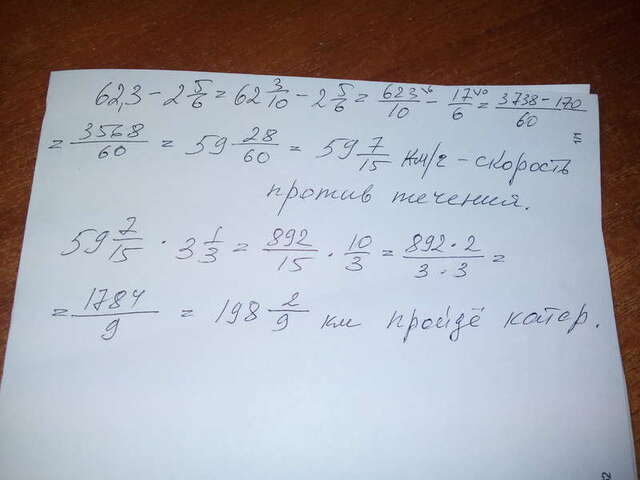 62,3 - 2 5/6 = 62 3/10 - 2 5/6 = 623/10 \6 - 17/6 \10 = 3738 - 170/60
= 3568/60 = 59 28/60 = 59 7/15 км/г - скорость
против течения.
59 7/15 · 3 1/3 = 892/15 · 10/3 = 892 · 2/3 · 3 =
= 1784/9 = 198 2/9 км пройдё катер.